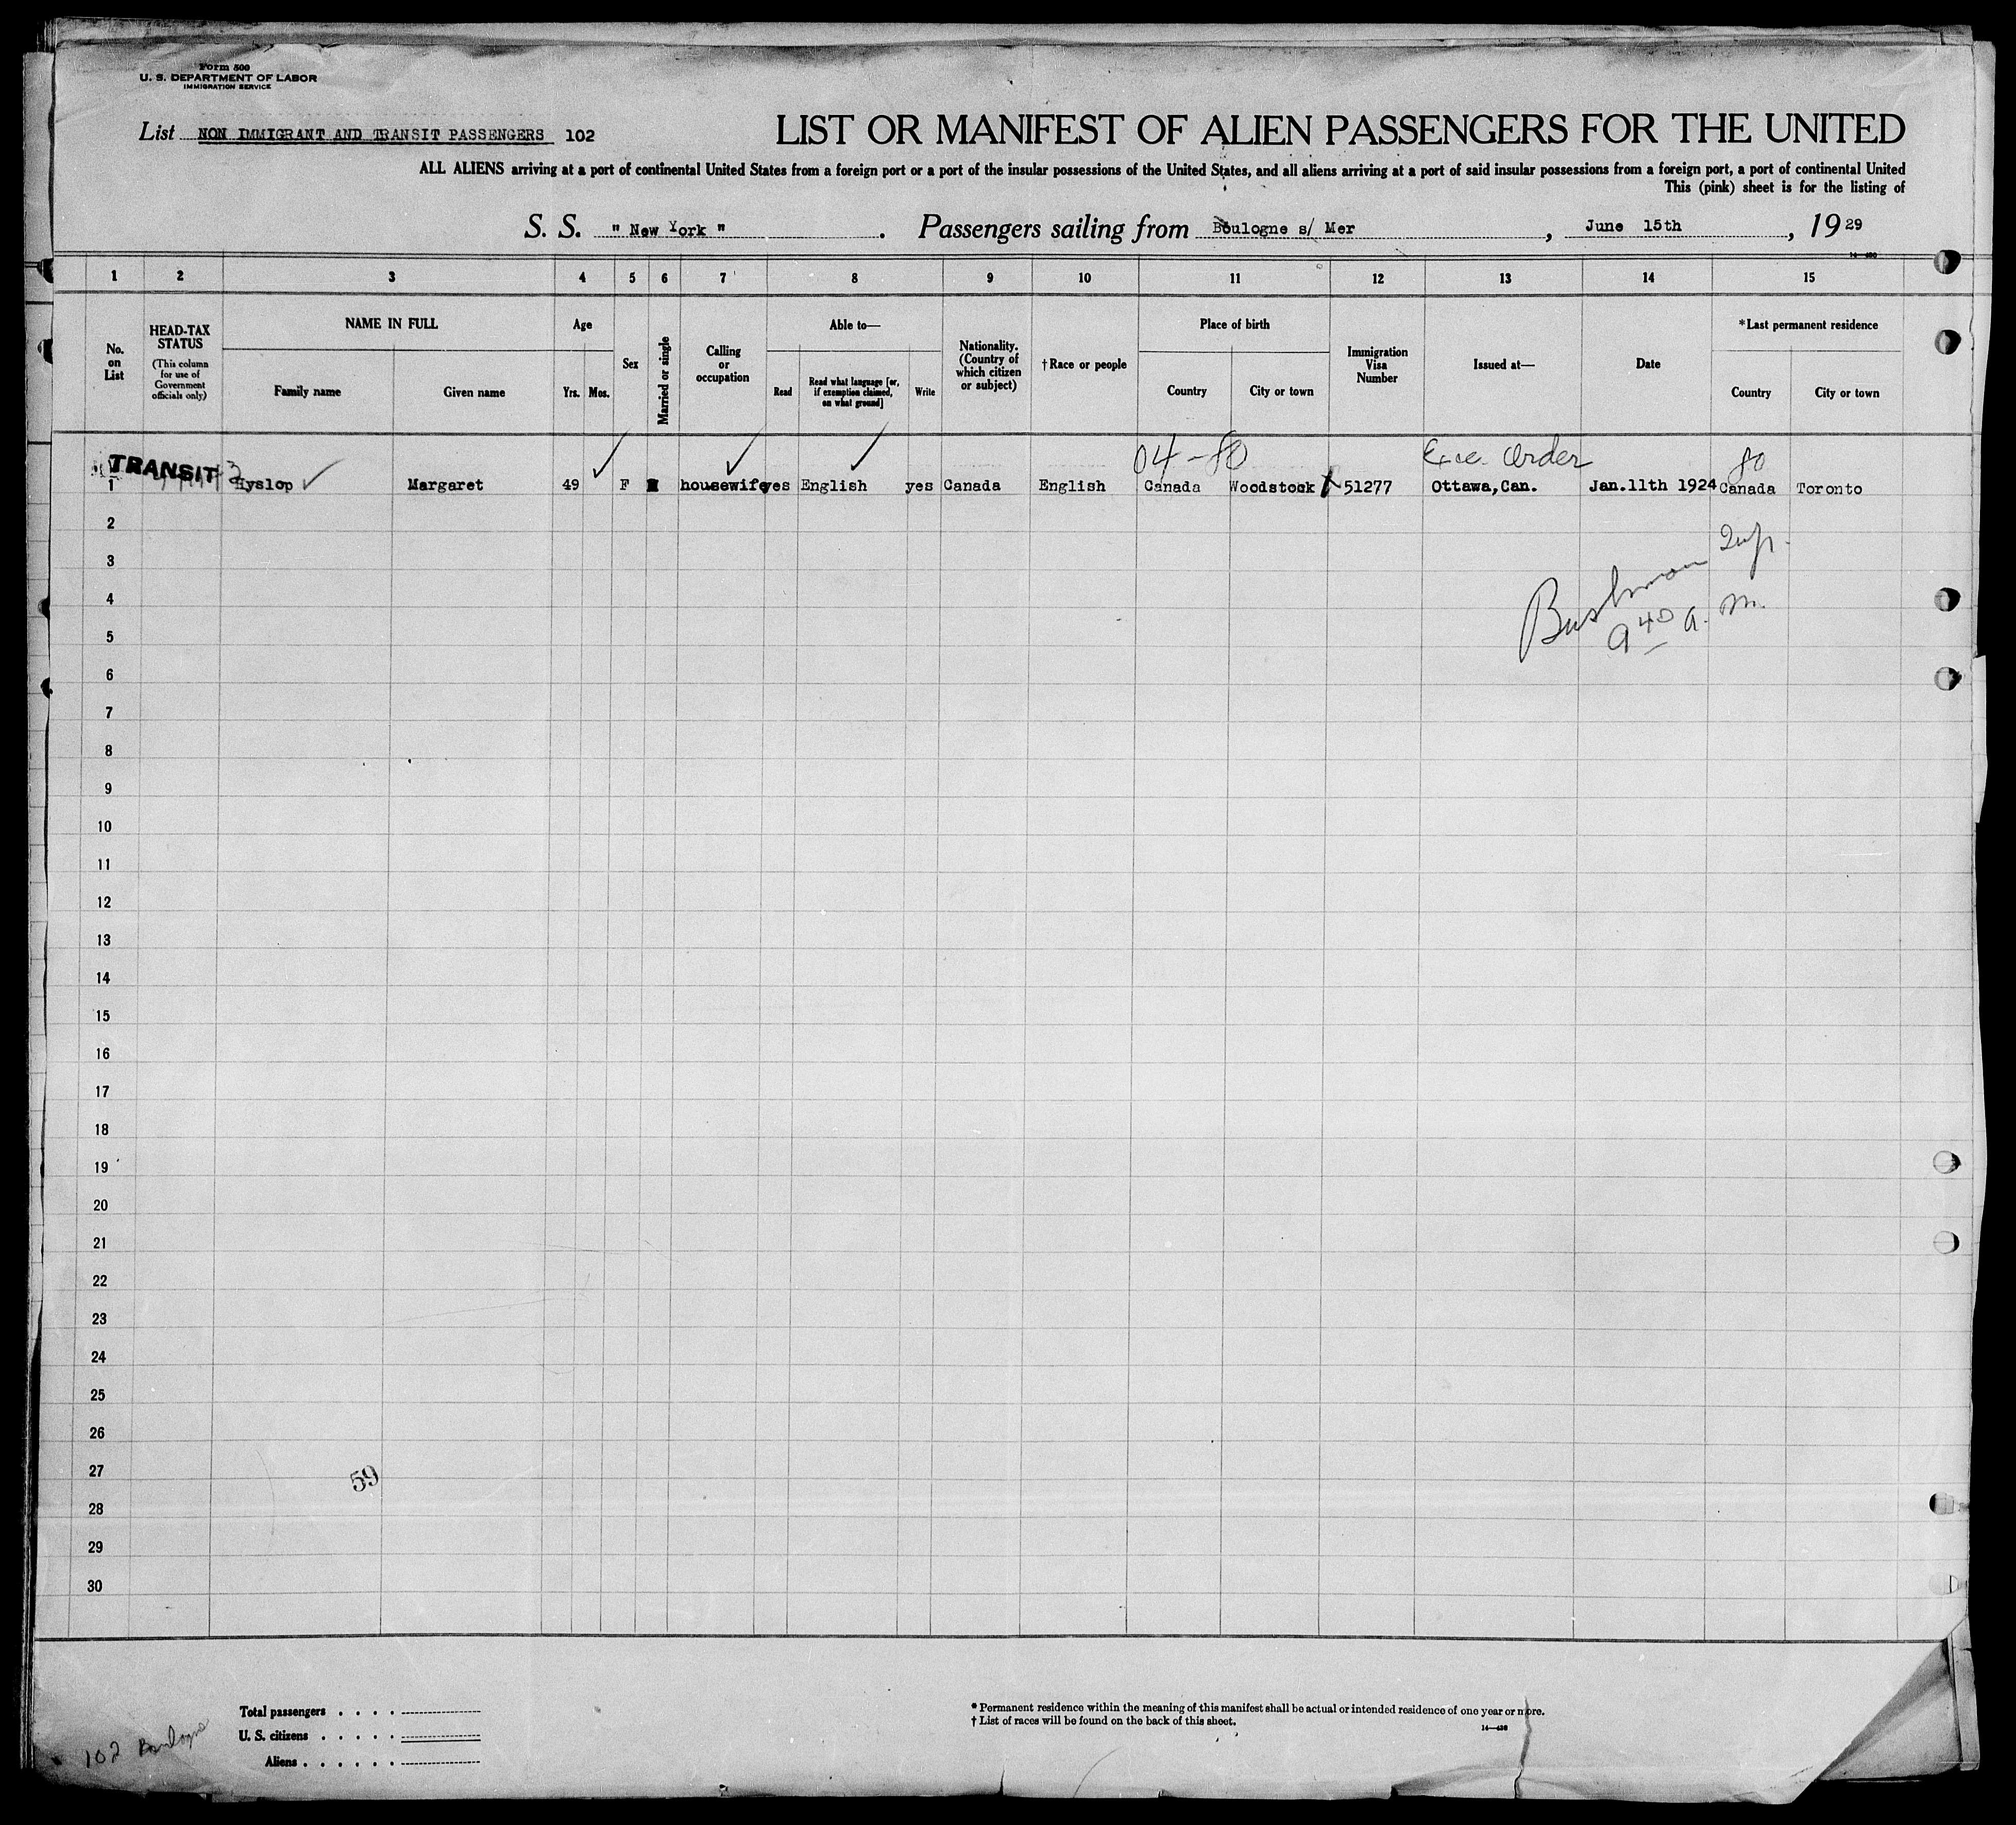 Form 500
U. S. DEPARTMENT OF LABOR
IMMIGRATION SERVICE
List NON IMMIGRANT AND TRANSIT PASSENGERS 102
LIST OR MANIFEST OF ALIEN PASSENGERS FOR THE UNITED
ALL ALIENS arriving at a port of continental United States from a foreign port or a port of the insular possessions of the United States, and all aliens arriving at a port of said insular possessions from a foreign port, a port of continental United
This (pink) sheet is for the listing of
S. S. " New York " . Passengers sailing from Boulogne s/ Mer , June 15th , 19 29
1 2 3 4 5 6 7 8 9 10 11 12 13 14 15
No. on List
HEAD-TAX STATUS (This column for use of Government officials only)
NAME IN FULL
Family name Given name
Age
Yrs. Mos.
Sex
Married or single
Calling or occupation
Able to—
Read Read what language [or, if exemption claimed, on what ground] Write
Nationality. (Country of which citizen or subject)
† Race or people
Place of birth
Country City or town
Immigration Visa Number
Issued at—
Date
* Last permanent residence
Country City or town
TRANSIT 04-80 Exe. Order 80
1 Hyslop Margaret 49 F housewife yes English yes Canada English Canada Woodstock 51277 Ottawa, Can. Jan. 11th 1924 Canada Toronto
2
3
Bushman Insp.
4
9 40 a. m.
5
6
7
8
9
10
11
12
13
14
15
16
17
18
19
20
21
22
23
24
25
26
27 59
28
29
30
Total passengers . . . .
U. S. citizens . . . . .
Aliens . . . . . .
* Permanent residence within the meaning of this manifest shall be actual or intended residence of one year or more.
† List of races will be found on the back of this sheet.
14—430
102 Boulogne